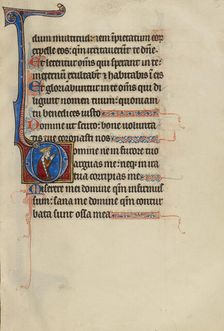 dium multitudinem impietatum eor
expelle eos: qm irritauerunt te dne.
Et letentur omnes qui sperant in te:
in eternum exultabunt & habitabis i eis
Et gloriabuntur in te oms qui di
ligunt nomen tuum: quoniam
tu benedices iusto.
Domine ut scuto: bone uolunta
tis tue coronasti nos.
Domine ne in furore tuo
arguas me: neq in ira
tua corripias me.
Miserere mei domine qm infirmus
sum: sana me domine qm contur
bata sunt ossa mea.